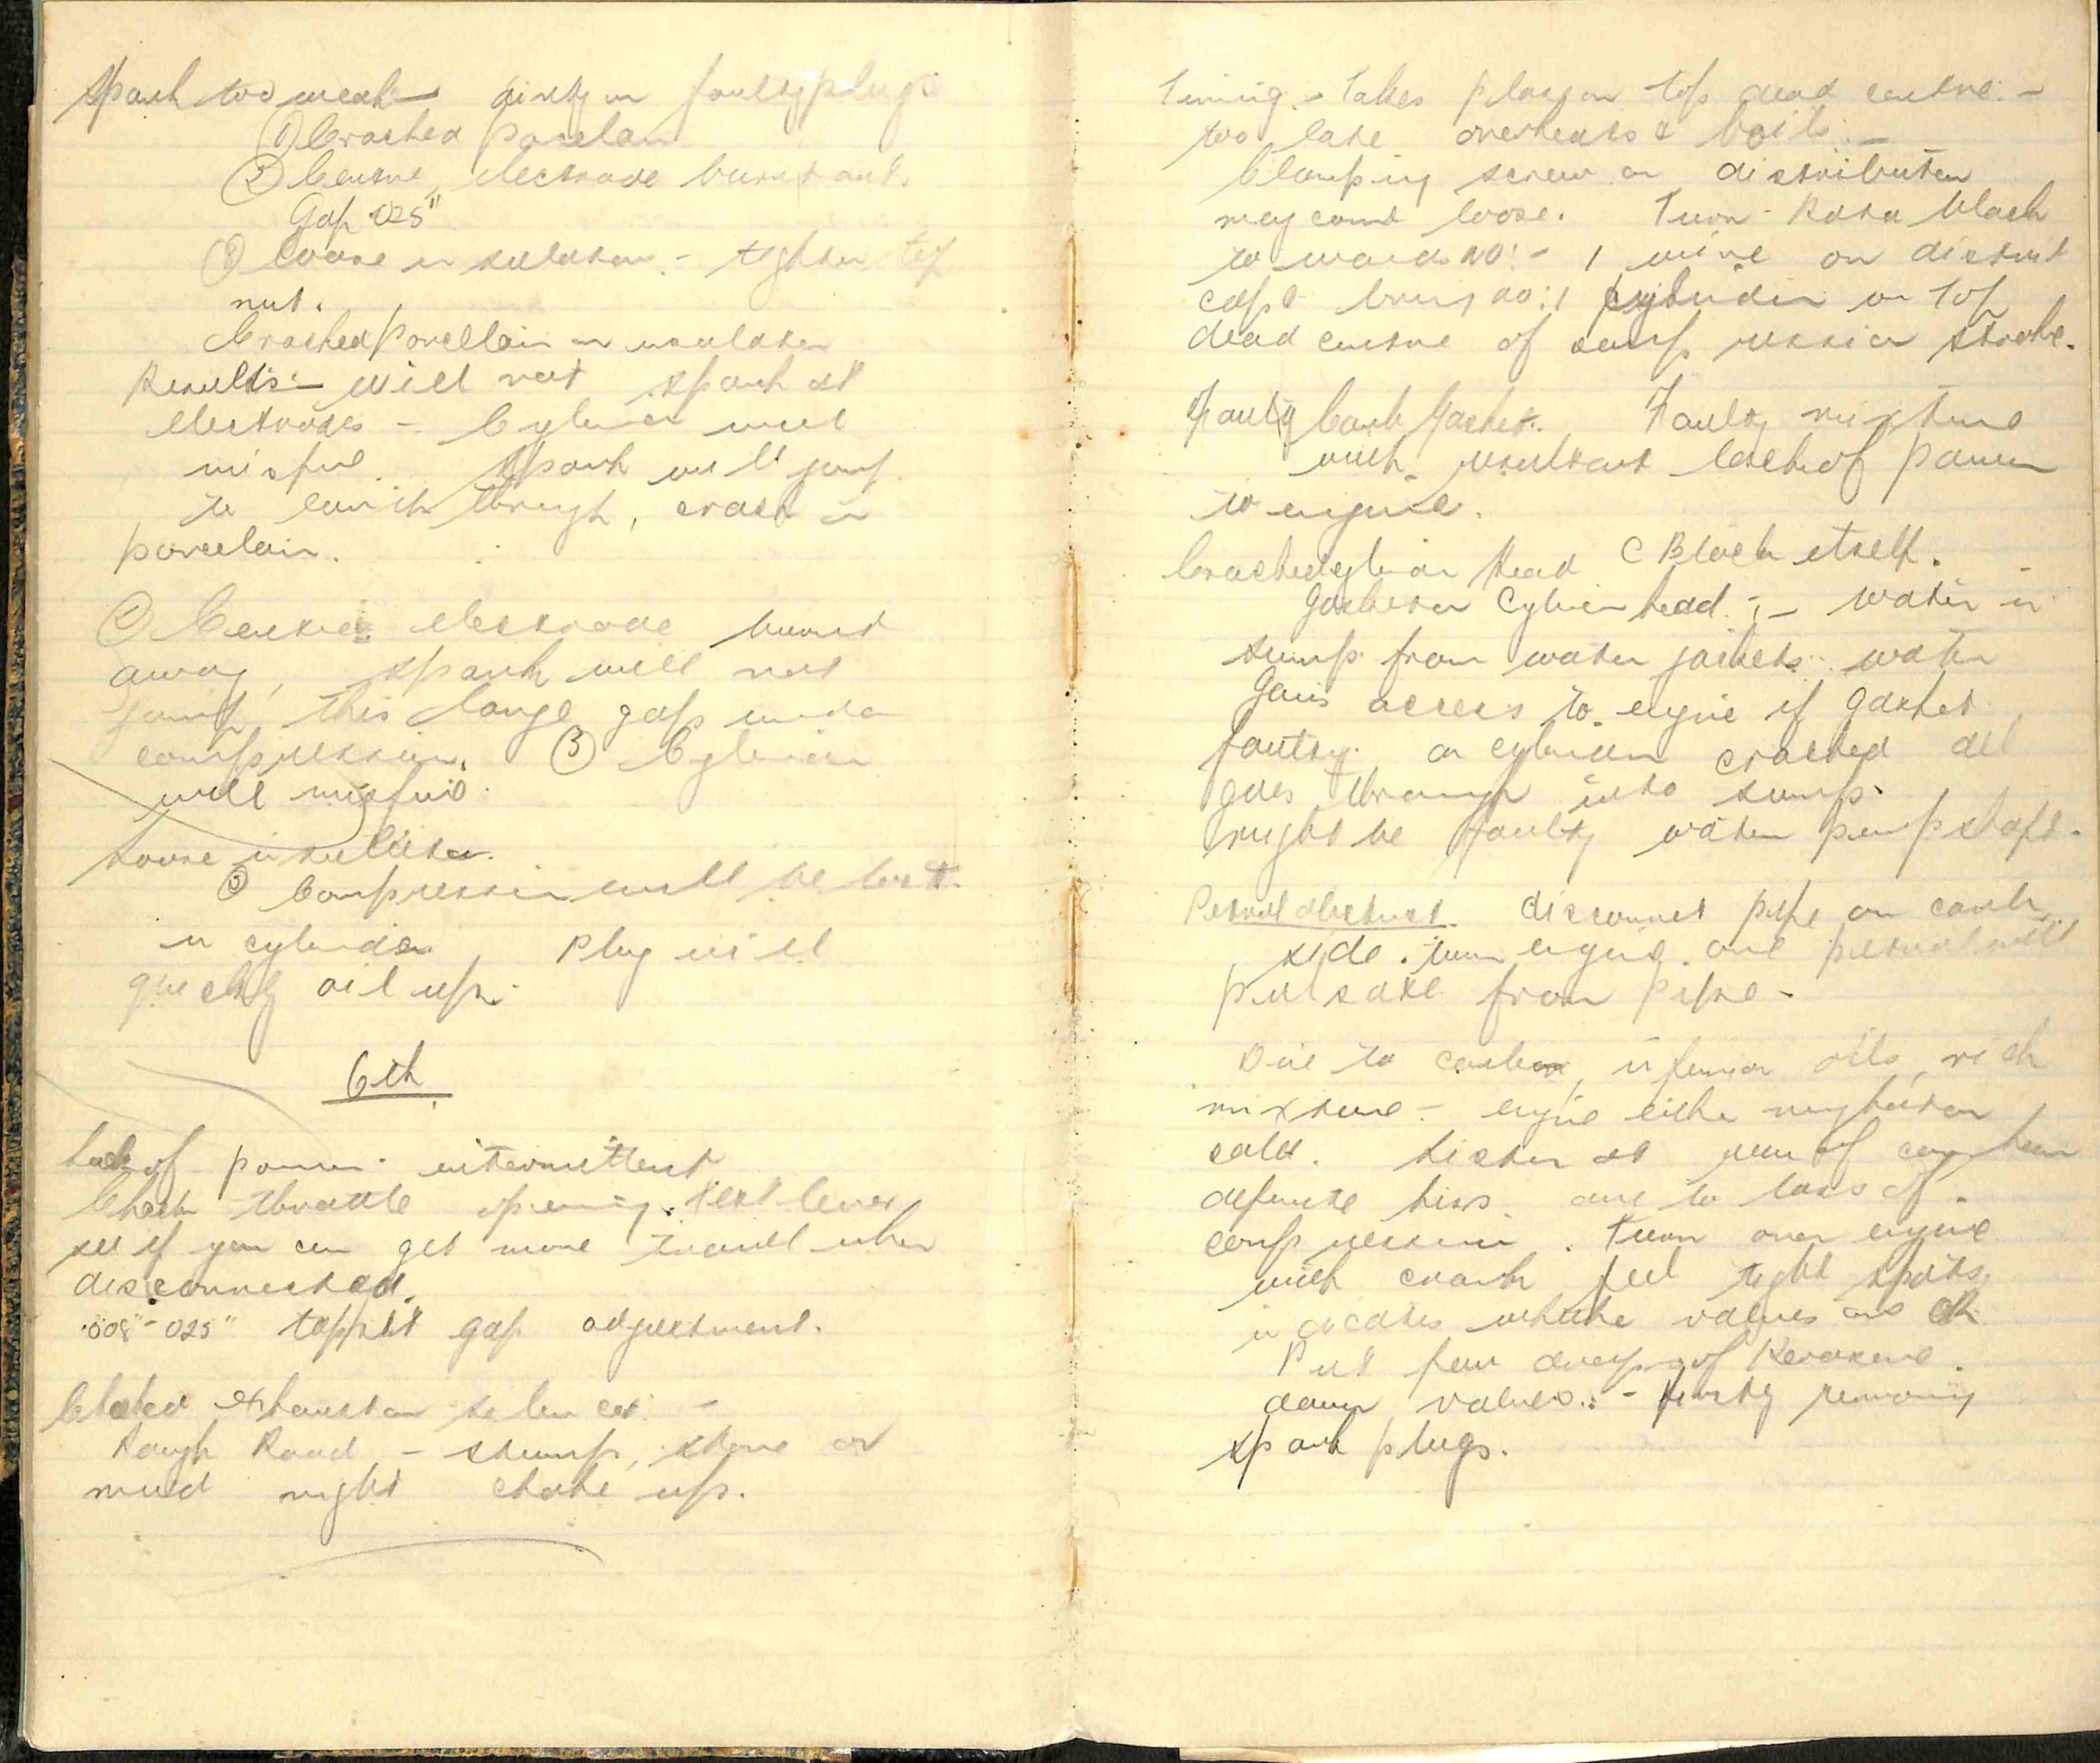 Spark too weak dirty or faulty plugs
① Cracked Porcelain
② Centre electrode burnt out.
Gap 025"
③ loose insulator - tighten top
nut.
Cracked Porcellain or insulator
Results:- will not spark at
electrodes - Cylinder will
misfire. Spark will jump
to earth through, crack in
porcelain.
② Centre electrode burnt
away, spark will not
jump this large gap under
compression. ③ Cylinder
will misfire.
Loose insulator.
③ Compression will be lost
in cylinder Plug will
quickly oil up.
6th
Lack of power intermittent
Check throttle opening. test lever
see if you can get more travel when
disconnected.
.008"-025" tappit gap adjustment.
Choked Exhaust or silencer. -
Rough Road - stump, stone or
mud might choke up.
Timing - Takes place on top dead centre. -
too late overheats & boils. -
Clamping screw on distributer
may come loose. Turn Rotor black
towards NO: 1 wire on distrib
cap & bring no: 1 cylinder on top
dead centre of compression stroke.
Faulty Carb Gasket. Faulty mixture
with resultant lack of power
to engine.
Cracked cylinder Head C Block itself.
Gasket on Cylinder head. - water in
sump from water jackets. water
Gains access to engine if gasket
faulty or cylinder cracked all
goes through into sump.
might be faulty water pump shaft.
Petrol obstruct. disconnect pipe on carb
side. turn engine. and petrol will
pulsate from pipe -
Due to carbon, inferior oils, rich
mixture - engine either might hot or
cold. Listen at rear of car hear
definite hiss. due to loss of.
compression. Turn over engine
with crank feel tight spots
indicates whether valves are OK.
Put few drops of Kerosene.
down valves. - firstly removing
spark plugs.